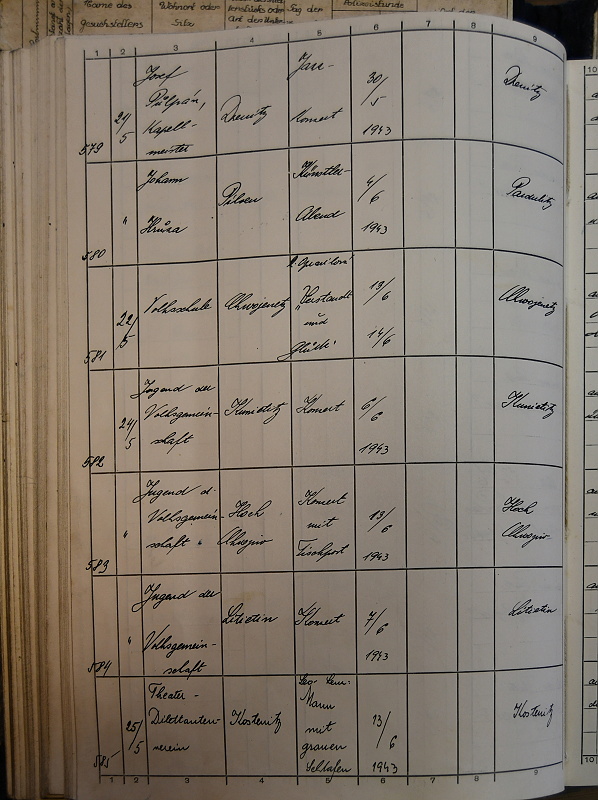 Name des
Gesuchstellers
Wohnort oder
Sitz
Tag der
Polizeistunde
1 2 3 4 5 6 7 8 9
579
21/5
Josef
Kapell-
meister
Dienitz
Jazz-
Konzert
30/5
1943
Dienitz
580
"
Johann
Hruša
Pilsen
Künstler-
Abend
4/6
1943
Pardubitz
581
22/5
Volksschule
Chwojenetz
"Verstandt
und
Glück"
13/6
14/6
Chwojenetz
582
24/5
Jugend der
Volksgemein-
schaft
Kunietitz
Konzert
6/6
1943
Kunietitz
583
"
Jugend d.
Volksgemein-
schaft "
Hoch
Konzert
mit
13/6
1943
Hoch
584
"
Jugend der
Volksgemein-
schaft
Litietin
Konzert
7/6
1943
Litietin
585
25/5
Theater-
Dilettanten-
verein
Kostenitz
Mann
mit
grauen
Schläfen
13/6
1943
Kostenitz
1 2 3 4 5 6 7 8 9
10
10